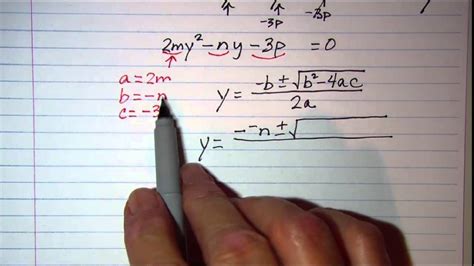 -3p -3p
2my²-ny-3p =0
a=2m
b=-n
c=-3
y= -b±√b²-4ac / 2a
y= --n±√